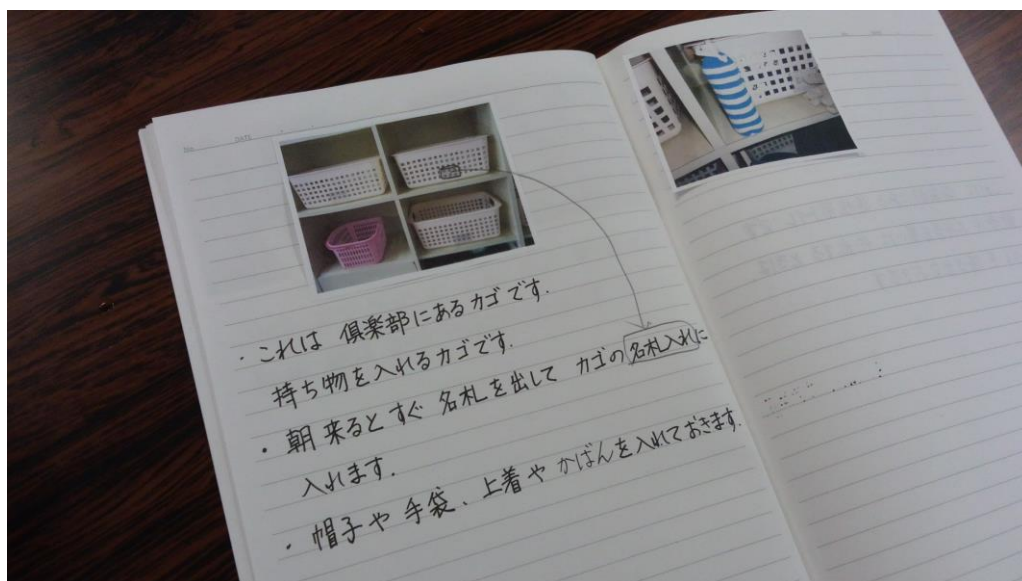 ・これは 倶楽部にあるカゴです.
持ち物を入れるカゴです.
・朝 来るとすぐ 名札を出して カゴの名札入れに
入れます.
・帽子や 手袋、上着や かばんを入れておきます.